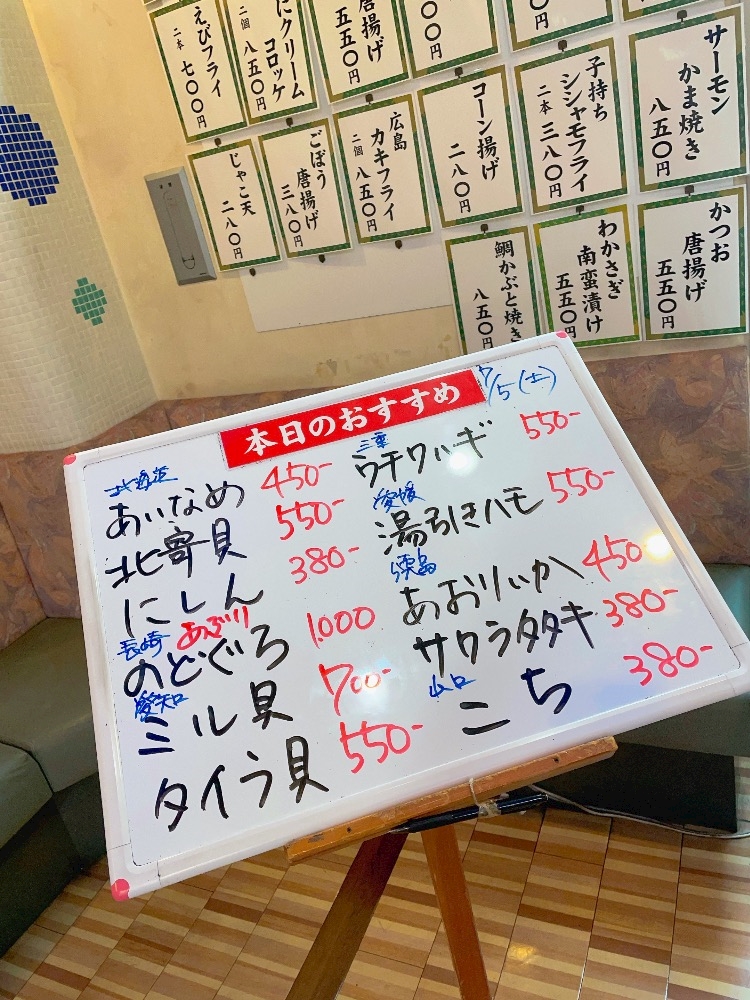 えびフライ
二本 七〇〇円
にクリーム
コロッケ
二個 八五〇円
唐揚げ
五五〇円
〇〇円
円
サーモン
かま焼き
八五〇円
子持ち
シシャモフライ
二本 三八〇円
コーン揚げ
二八〇円
広島
カキフライ
二個 八五〇円
ごぼう
唐揚げ
三八〇円
じゃこ天
二八〇円
かつお
唐揚げ
五五〇円
わかさぎ
南蛮漬け
五五〇円
鯛かぶと焼き
八五〇円
本日のおすすめ
7/5(土)
北海道
あいなめ 450-
北寄貝 550-
にしん 380-
長崎 あぶり
のどぐろ 1.000
愛知
ミル貝 700-
タイラ貝 550-
三重
ウチワハギ 550-
愛媛
湯引きハモ 550-
あおりいか 450
サワラタタキ 380-
山口
こち 380-